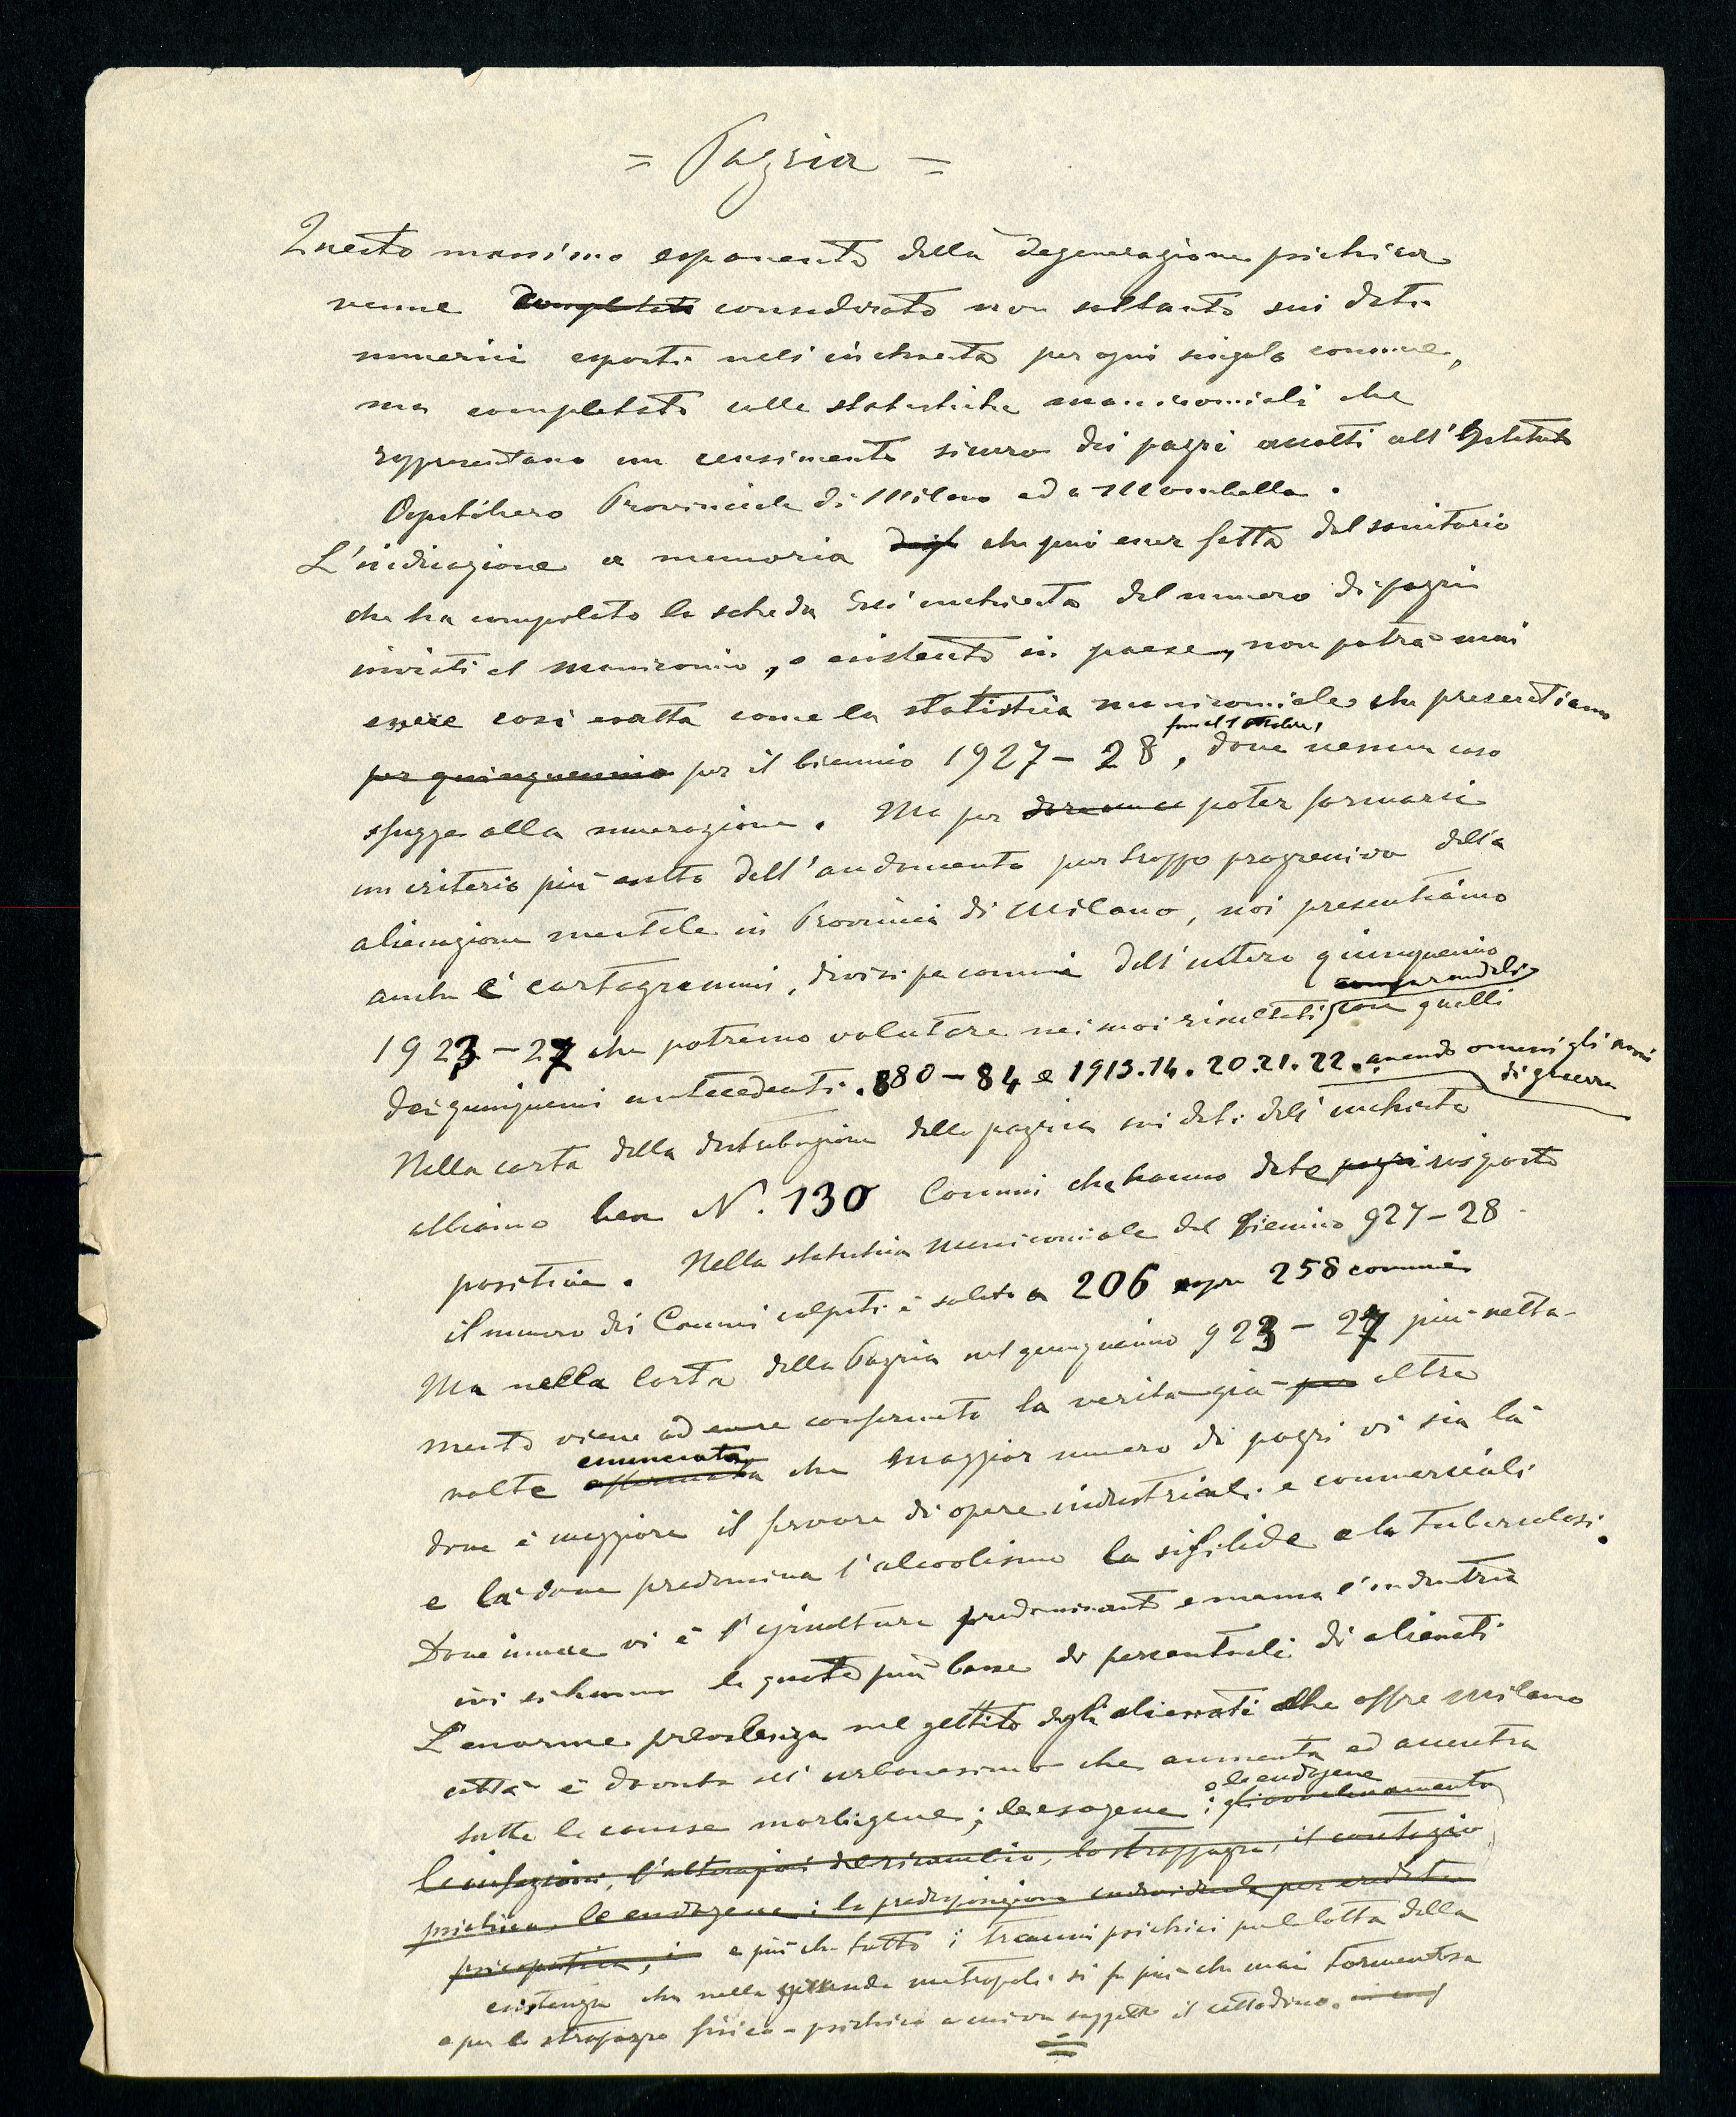 = Pazzia =
Questo massimo esponente della degenerazione psichica
venne completato considerato non soltanto sui dati
numerici esposti nell'inchiesta per ogni singolo comune,
ma completato colle statistiche manicomiali che
rappresentano un censimento sicuro dei pazzi accolti all'Istituto
Ospitaliero Provinciale di Milano ed a Mombello.
L'indicazione a memoria che può esser fatta dal sanitario
che ha compilato la scheda dell'inchiesta del numero di pazzi
inviati al manicomio, o esistenti in paese, non potrà mai
essere così esatta come la statistica manicomiale che presentiamo
per quinquennio per il biennio 1927-28, dove nessun caso
sfugge alla numerazione. Ma per poter formarci
un criterio più esatto dell'andamento purtroppo progressivo della
alienazione mentale in Provincia di Milano, noi presentiamo
anche i cartogrammi, divisi per comuni dell'intero quinquennio
comparandoli
1923-27 che potremo valutare nei suoi risultati con quelli
dei quinquenni antecedenti. 880-84 e 1913.14.20.21.22. avendo omessi gli anni
di guerra
Nella carta della distribuzione della pazzia sui dati dell'inchiesta
abbiamo ben N. 130 Comuni che hanno date pazzi risposte
positive. Nella statistica manicomiale del biennio 927-28
il numero dei Comuni colpiti è salito a 206 sopra 258 comuni
Ma nella Carta della Pazzia nel quinquennio 923-27 più netta-
mente viene ad essere confermata la verità già più altre
enunciata
volte affermata che maggior numero di pazzi vi sia là
dove è maggiore il fervore di opere industriali e commerciali
e là dove predomina l'alcoolismo la sifilide e la Tubercolosi.
Dove invece vi è l'agricoltura predominante e manca l'industria
ivi si hanno le quote più basse di percentuali di alienati
L'enorme prevalenza nel gettito degli alienati che offre Milano
città è dovuta all'urbanesimo che aumenta ed accentra
o le endogene
tutte le cause morbigene; le esogene; gli avvelenamenti
le infezioni, l'alterazioni del ricambio, lo strapazzo, il contagio
psichico, le endogene: la predisposizione individuale per eredità
psicopatica, e più che tutto i traumi psichici per la lotta della
esistenza che nella grande metropoli si fa più che mai tormentosa
e per lo strapazzo fisico-psichico a cui va soggetto il cittadino.